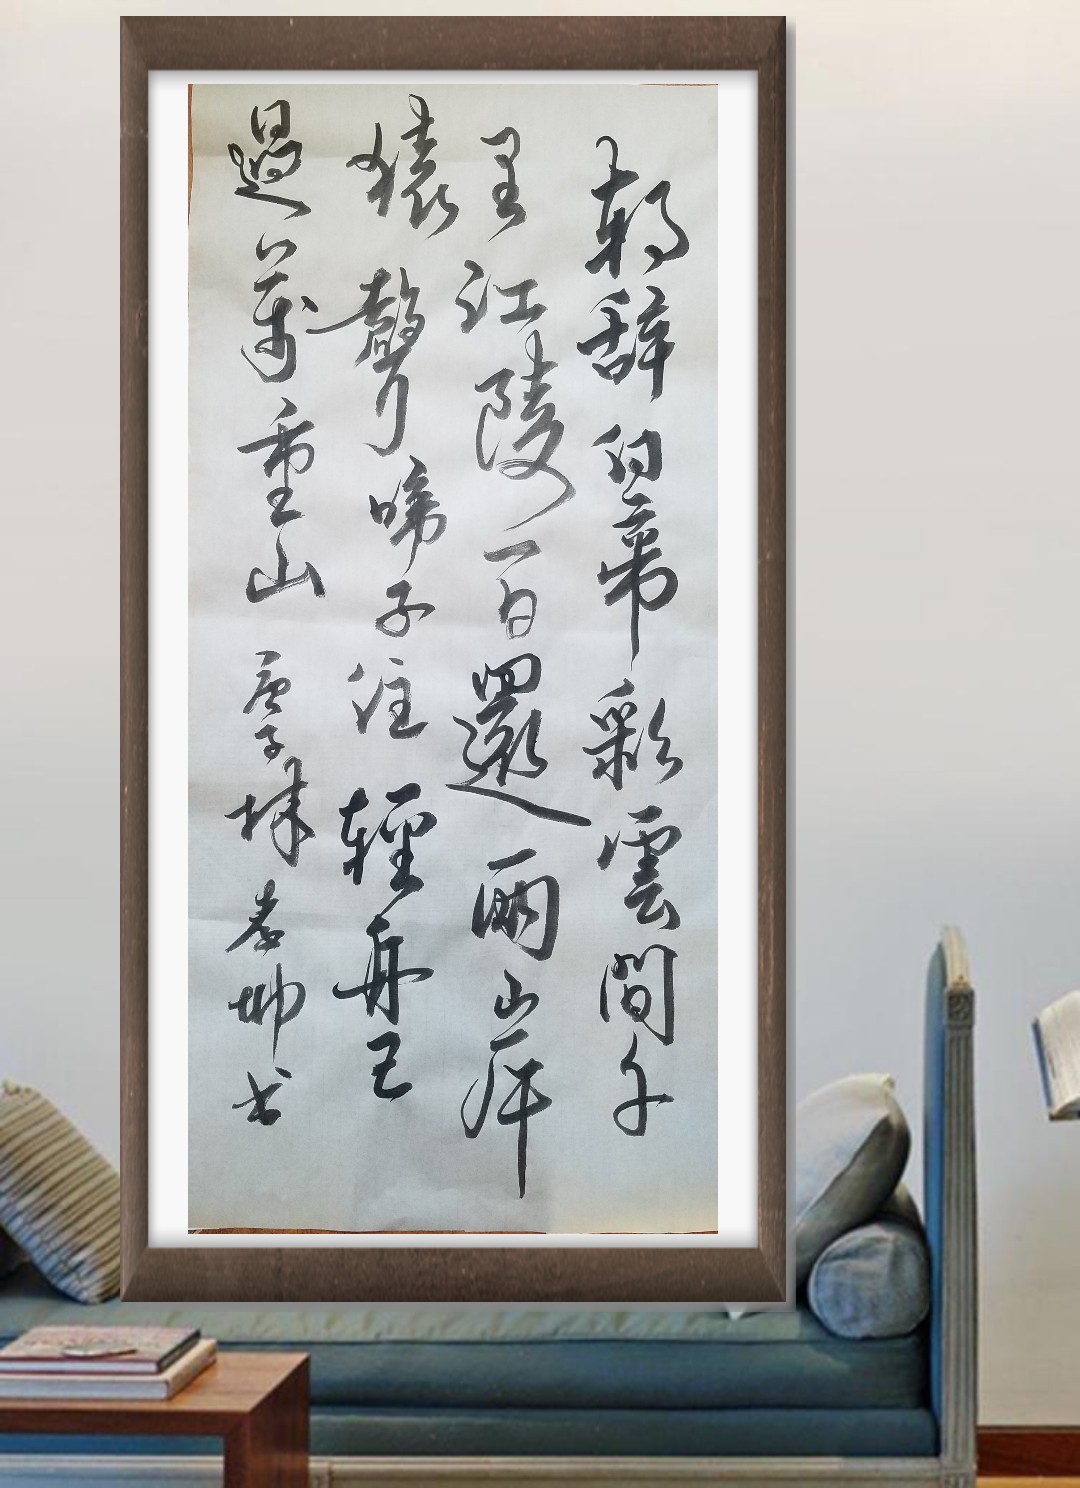 朝辞白帝彩雲間千
里江陵一日還兩岸
猿聲啼不住輕舟已
過萬重山 庚子 坤书